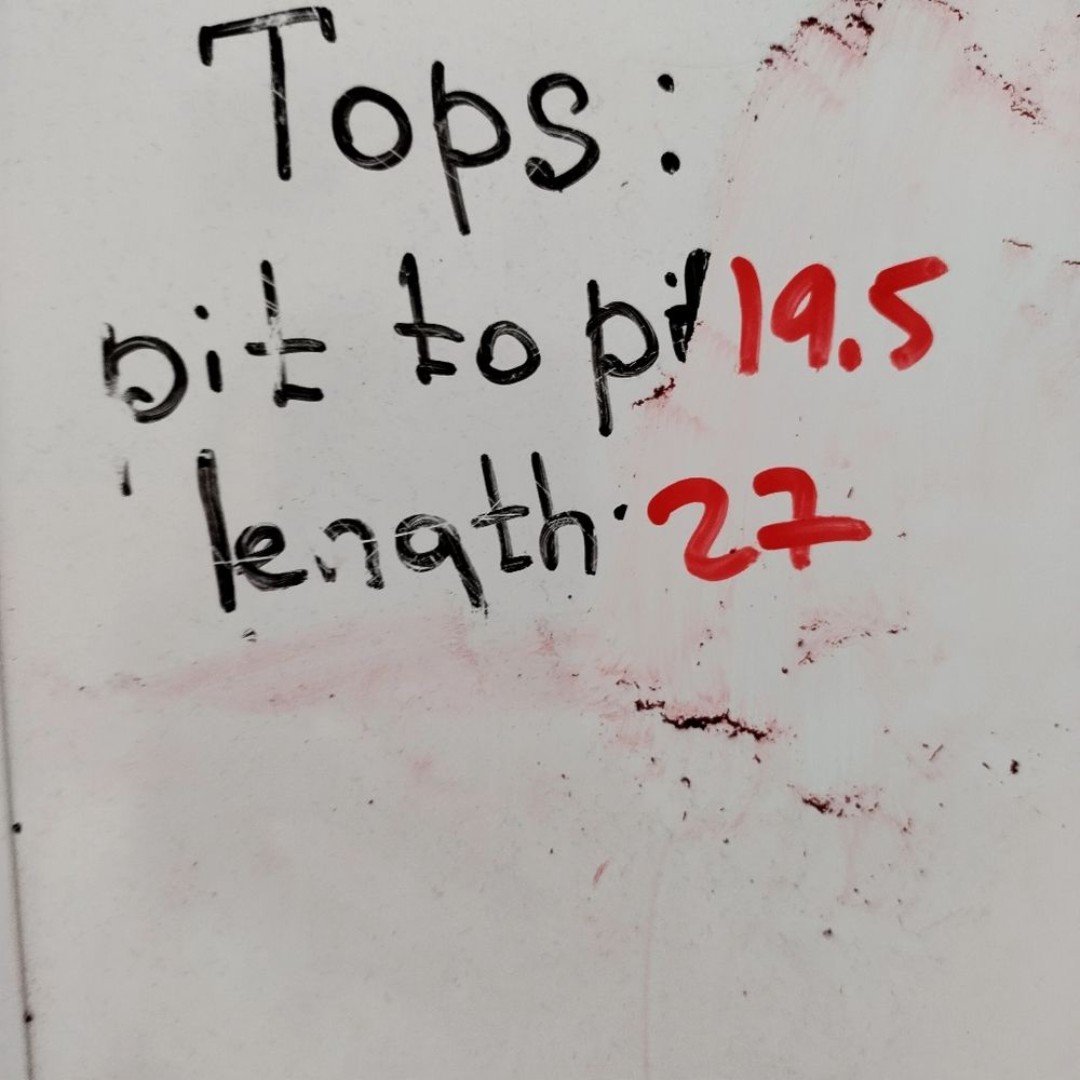 Tops:
pit to pi 19.5
length. 27